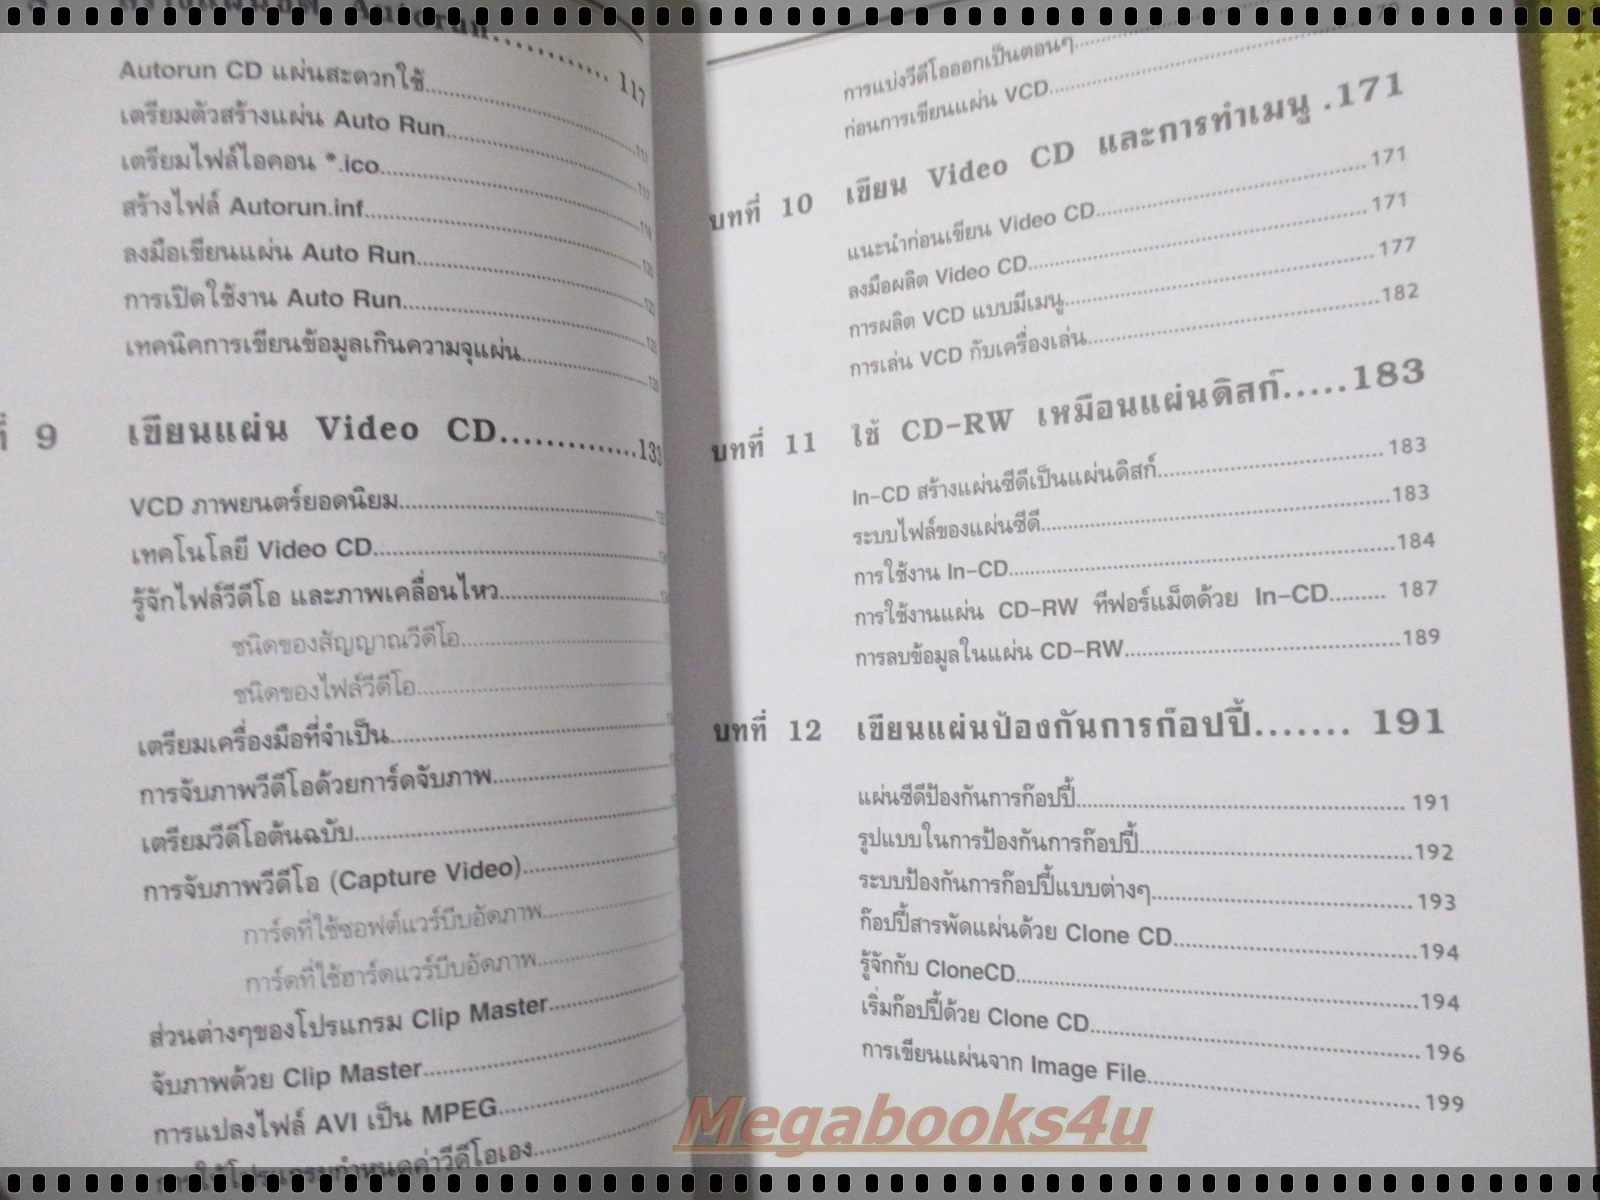 Autorun.......... 117
Autorun CD แผ่นสะดวกใช้
เตรียมตัวสร้างแผ่น Auto Run
เตรียมไฟล์ไอคอน *.ico
สร้างไฟล์ Autorun.inf
ลงมือเขียนแผ่น Auto Run
การเปิดใช้งาน Auto Run
เทคนิคการเขียนข้อมูลเกินความจุแผ่น
ที่ 9 เขียนแผ่น Video CD..............133
VCD ภาพยนตร์ยอดนิยม
เทคโนโลยี Video CD
รู้จักไฟล์วีดีโอ และภาพเคลื่อนไหว
ชนิดของสัญญาณวีดีโอ
ชนิดของไฟล์วีดีโอ
เตรียมเครื่องมือที่จำเป็น
การจับภาพวีดีโอด้วยการ์ดจับภาพ
เตรียมวีดีโอต้นฉบับ
การจับภาพวีดีโอ (Capture Video)
การ์ดที่ใช้ซอฟต์แวร์บีบอัดภาพ
การ์ดที่ใช้ฮาร์ดแวร์บีบอัดภาพ
ส่วนต่างๆของโปรแกรม Clip Master
จับภาพด้วย Clip Master
การแปลงไฟล์ AVI เป็น MPEG
การใช้โปรแกรมกำหนดค่าวีดีโอเอง
การแบ่งวีดีโอออกเป็นตอนๆ
ก่อนการเขียนแผ่น VCD
บทที่ 10 เขียน Video CD และการทำเมนู .171
แนะนำก่อนเขียน Video CD..........171
ลงมือผลิต Video CD..........171
การผลิต VCD แบบมีเมนู..........177
การเล่น VCD กับเครื่องเล่น..........182
บทที่ 11 ใช้ CD-RW เหมือนแผ่นดิสก์.....183
In-CD สร้างแผ่นซีดีเป็นแผ่นดิสก์..........183
ระบบไฟล์ของแผ่นซีดี..........183
การใช้งาน In-CD..........184
การใช้งานแผ่น CD-RW ที่ฟอร์แม็ตด้วย In-CD......... 187
การลบข้อมูลในแผ่น CD-RW..........189
บทที่ 12 เขียนแผ่นป้องกันการก๊อปปี้....... 191
แผ่นซีดีป้องกันการก๊อปปี้.......... 191
รูปแบบในการป้องกันการก๊อปปี้..........192
ระบบป้องกันการก๊อปปี้แบบต่างๆ.......... 193
ก๊อปปี้สารพัดแผ่นด้วย Clone CD..........194
รู้จักกับ CloneCD..........194
เริ่มก๊อปปี้ด้วย Clone CD..........196
การเขียนแผ่นจาก Image File..........199
Megabooks4u